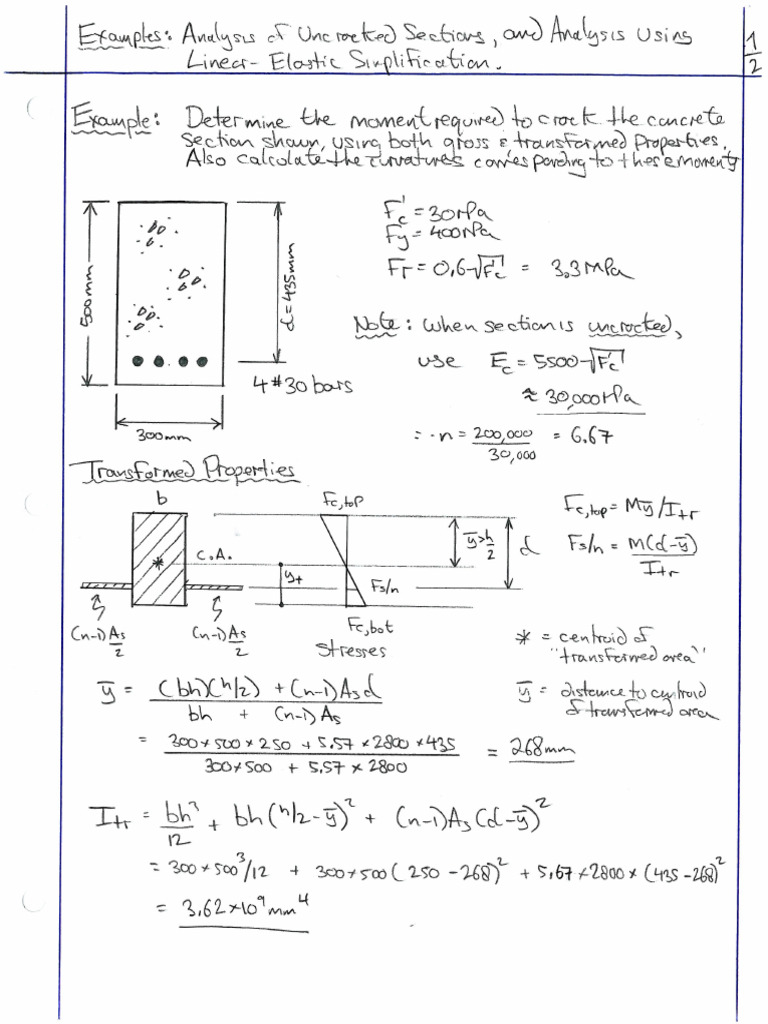 Examples: Analysis of Uncracked Sections, and Analysis Using
Linear-Elastic Simplification.
1/2
Example: Determine the moment required to crack the concrete
section shown, using both gross & transformed Properties.
Also calculate the curvatures corresponding to these moments
500mm
d=435mm
300mm
4 #30 bars
F'c = 30MPa
Fy = 400MPa
Fr = 0,6√F'c = 3,3MPa
Note: when section is uncracked,
use Ec = 5500√F'c
≈ 30,000MPa
∴ n = 200,000/30,000 = 6.67
Transformed Properties
b
C.A.
(n-1)As/2
(n-1)As/2
yt
Fc,top
Fs/n
Fc,bot
Stresses
ȳ>h/2
d
Fc,top = Mȳ/Itr
Fs/n = M(d-ȳ)/Itr
* = centroid of
"transformed area"
ȳ = distance to centroid
of transformed area
ȳ = ((bh)(h/2) + (n-1)Asd)/(bh + (n-1)As)
= (300×500×250 + 5.57×2800×435)/(300×500 + 5.57×2800) = 268mm
Itr = bh³/12 + bh(h/2-ȳ)² + (n-1)As(d-ȳ)²
= 300×500³/12 + 300×500(250-268)² + 5,67×2800×(435-268)²
= 3,62×10⁹mm⁴